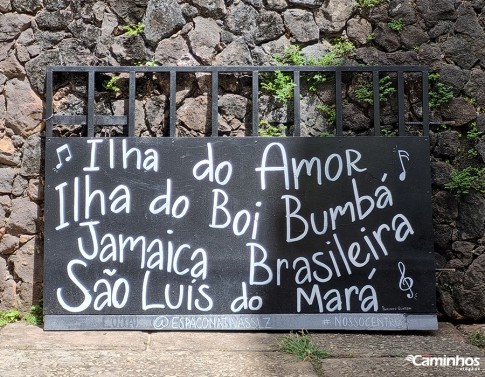 Ilha do AMOR
Ilha do Boi Bumbá
Jamaica Brasileira
São Luís do Mará
@ESPACONATIVASSLZ #NOSSOCENTRO
Caminhos